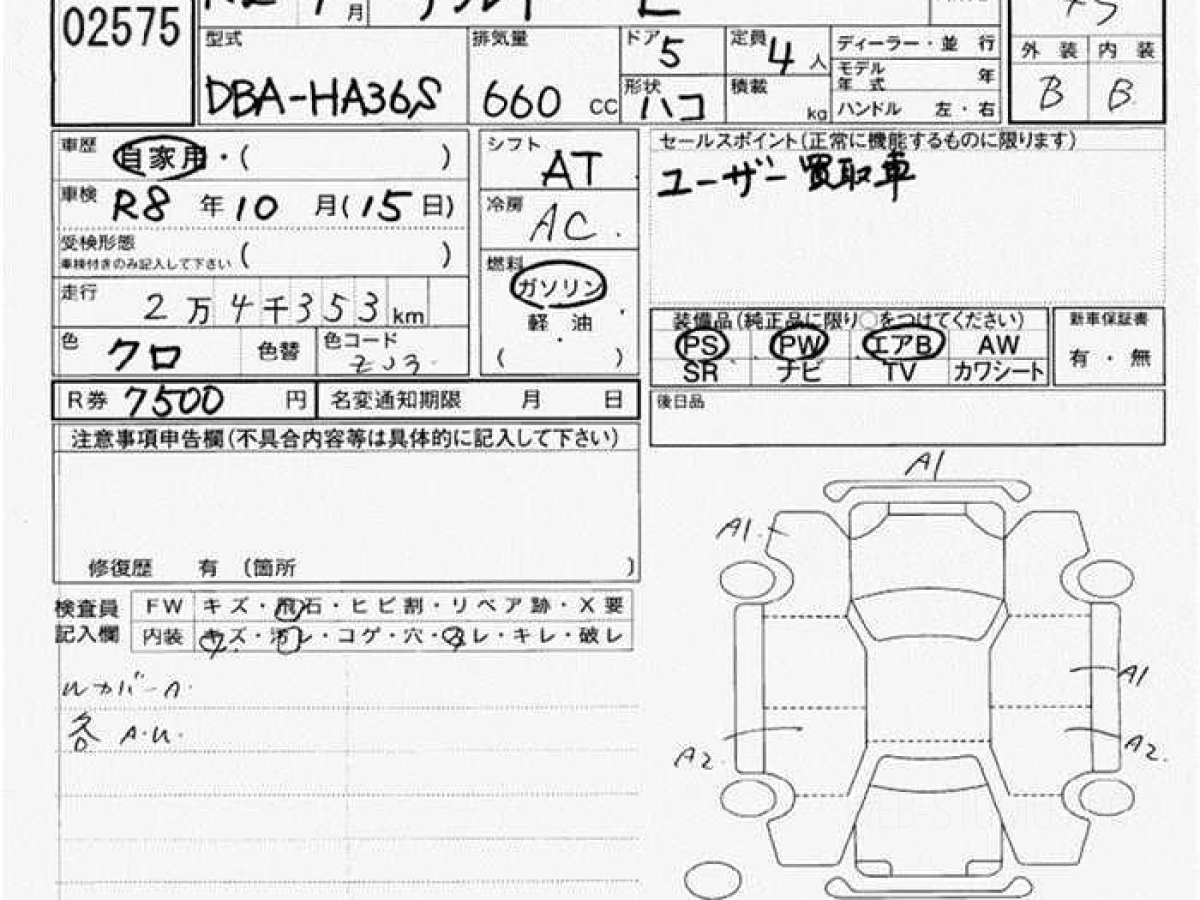 02575
月
型式 DBA-HA36S
排気量 660 CC
ドア 5
定員 4 人
形状 ハコ
積載 kg
ディーラー・並 行
モデル年式 年
ハンドル 左・右
外 装 内 装
B B
車歴 自家用・( )
車検 R8 年 10 月(15日)
受検形態
車検付きのみ記入して下さい ( )
走行 2万4千353km
色 クロ 色替 色コード ZJ3
シフト AT
冷房 AC.
燃料
ガソリン
軽 油
( )
セールスポイント(正常に機能するものに限ります)
ユーザー買取車
装備品(純正品に限り○をつけてください)
PS PW エアB AW
SR ナビ TV カワシート
新車保証書
有・無
R券 7500 円 名変通知期限 月 日
後日品
注意事項申告欄(不具合内容等は具体的に記入して下さい)
修復歴 有 (箇所 )
検査員
記入欄
FW キズ・飛石・ヒビ割・リペア跡・X要
内装 キズ・汚レ・コゲ・穴・スレ・キレ・破レ
ルカバーA.
各 A.U.
A1
A1
A1
A2
A2.